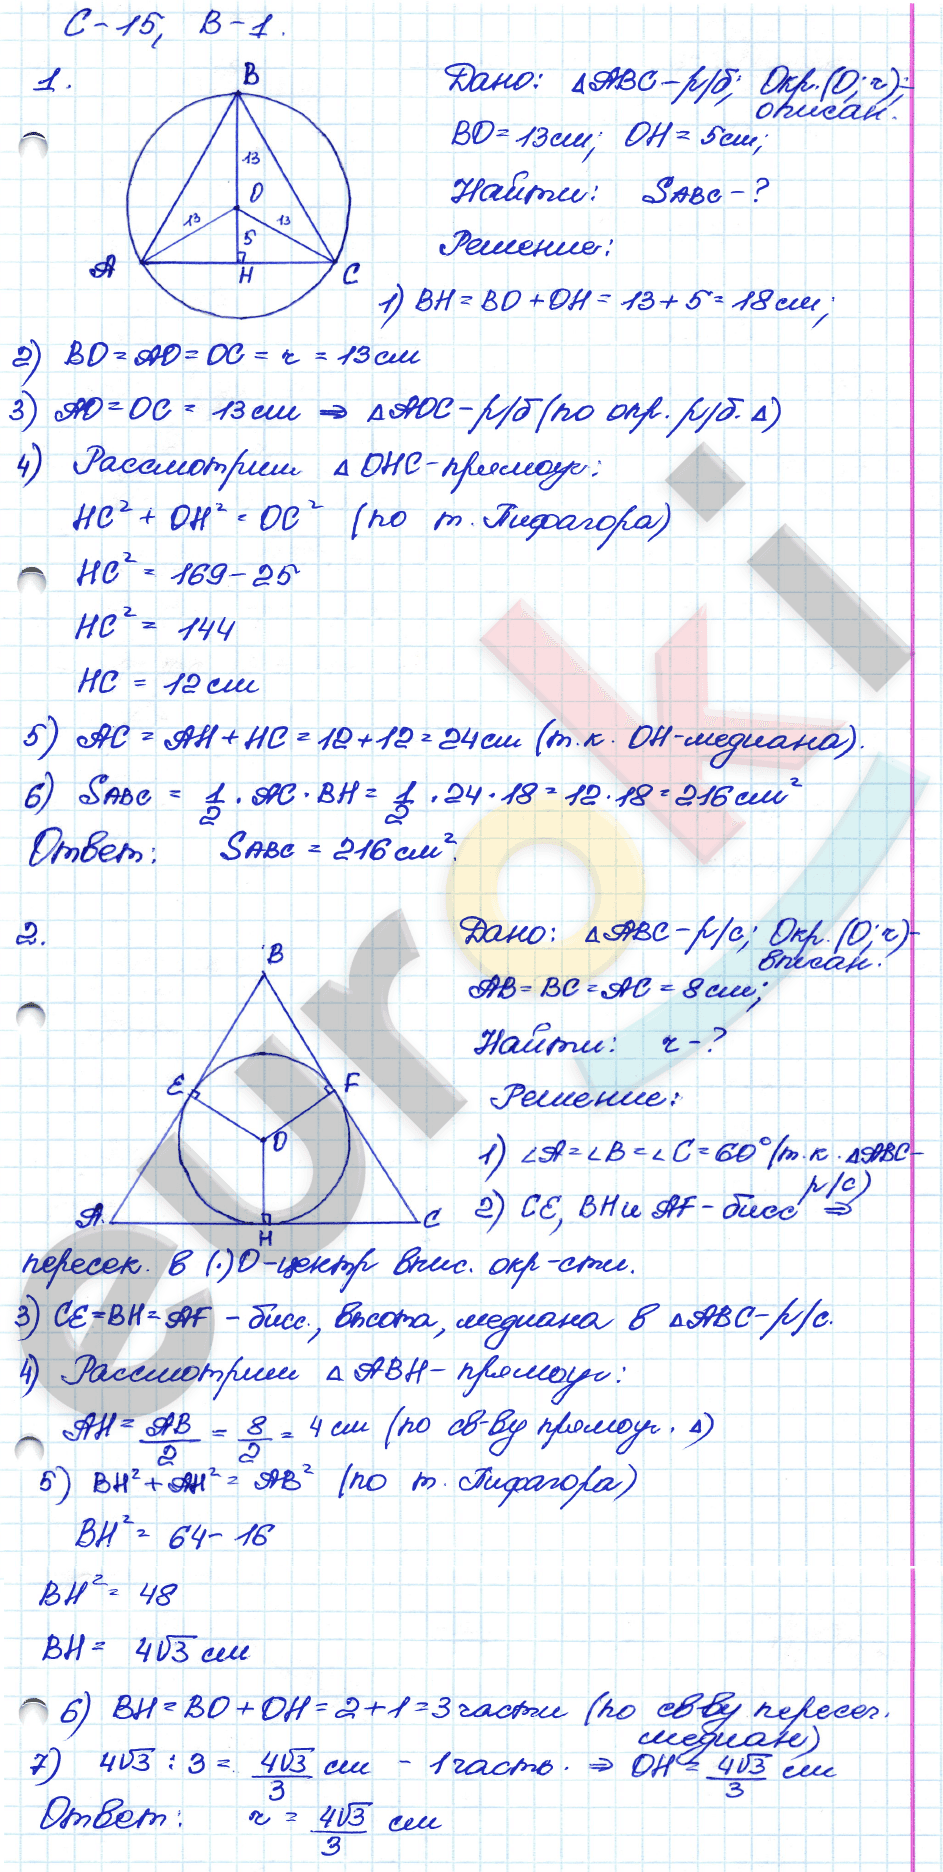 С-15, В-1.
1.
B
13
O
13
13
5
A
H
C
Дано: △ABC-р/б; Окр.(O;r)-
описан.
BO=13см; OH=5см;
Найти: SABC-?
Решение:
1) BH=BO+OH=13+5=18см;
2) BO=AO=OC=r=13см
3) AO=OC=13см ⇒ △AOC-р/б(по опр. р/б.△)
4) Рассмотрим △OHC-прямоуг:
HC²+OH²=OC² (по т. Пифагора)
HC²=169-25
HC²=144
HC=12см
5) AC=AH+HC=12+12=24см (т.к. OH-медиана).
6) SABC = 1/2 · AC · BH = 1/2 · 24 · 18 = 12 · 18 = 216см²
Ответ: SABC = 216см².
2.
B
E
F
O
A
H
C
Дано: △ABC-р/с; Окр.(O;r)-
вписан.
AB=BC=AC=8см;
Найти: r-?
Решение:
1) ∠A=∠B=∠C=60°(т.к. △ABC-
р/с)
2) CE, BH и AF-бисс ⇒
пересек. в (·)O-центр впис. окр-сти.
3) CE=BH=AF - бисс., высота, медиана в △ABC-р/с.
4) Рассмотрим △ABH-прямоуг:
AH = AB/2 = 8/2 = 4 см (по св-ву прямоуг. △)
5) BH²+AH²=AB² (по т. Пифагора)
BH²=64-16
BH²=48
BH=4√3 см
6) BH=BO+OH=2+1=3части (по св-ву пересеч.
медиан)
7) 4√3 : 3 = 4√3/3 см - 1часть. ⇒ OH = 4√3/3 см
Ответ: r = 4√3/3 см
euroki